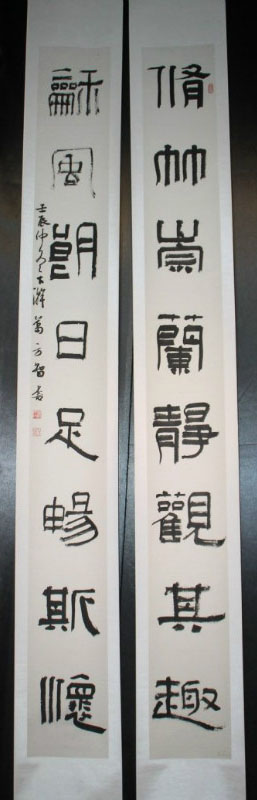 脩竹崇蘭靜觀其趣
龢風朗日足暢斯懷
壬辰仲 萬方智書